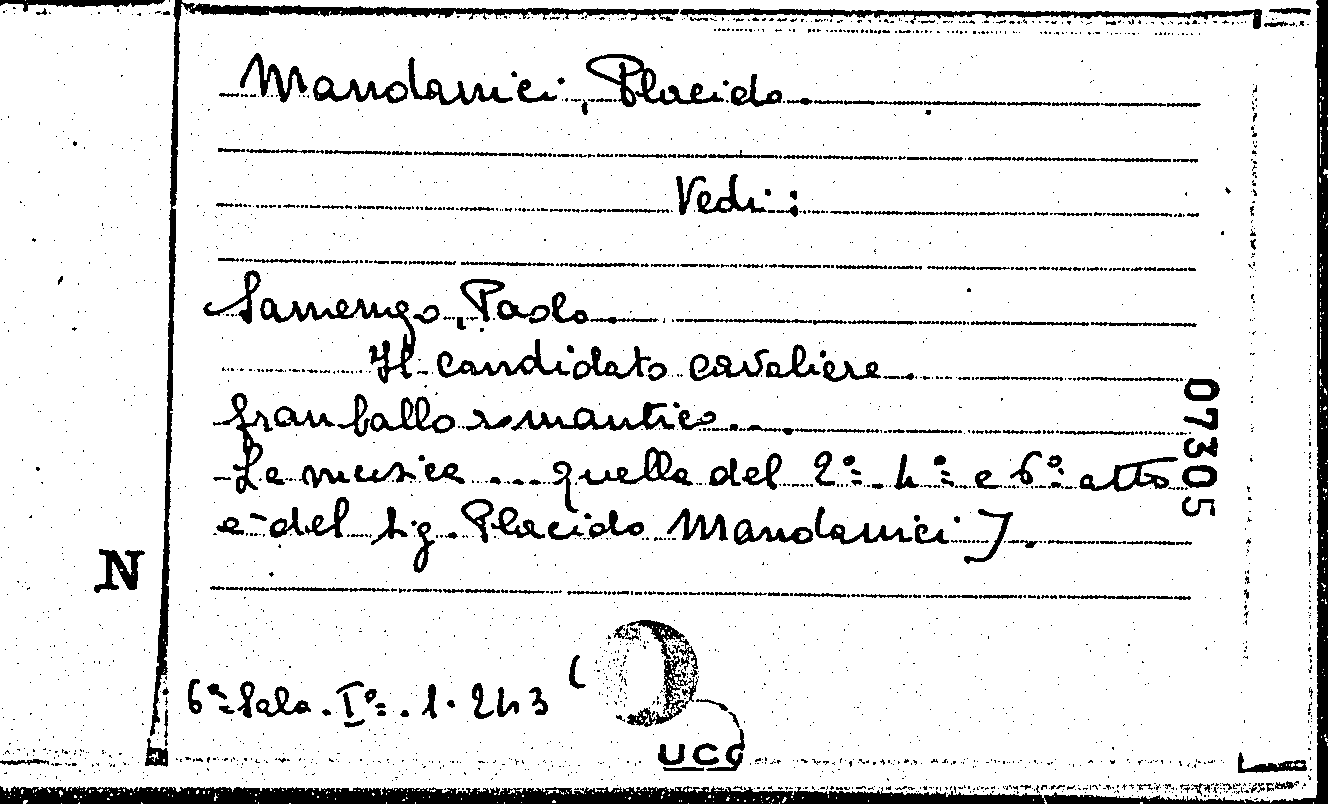 Mandanici, Placido.
Vedi:
Samengo, Paolo.
Il candidato cavaliere.
gran ballo romantico...
La musica ... quella del 2º. 4º e 6º atto
è del sig. Placido Mandanici].
07305
N
6ª Sala. Iº. 1. 243 (
UCC